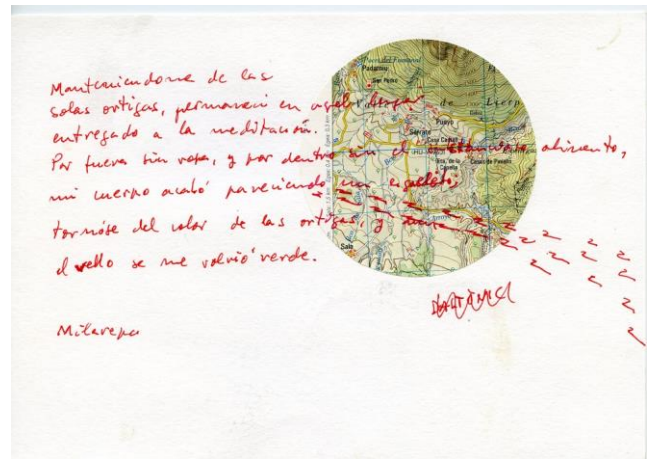 Manteniendome de las
solas ortigas, permanecí en aquel lugar
entregado a la meditación.
Por fuera sin ropa, y por dentro sin el alimento,
mi cuerpo acabó pareciendo un esqueleto;
tornóse del color de las ortigas, y
el vello se me volvió verde.
Milarepa
Padarniu
San Pedro
de
Pueyo
Serrate
Casa Carrera
Sala